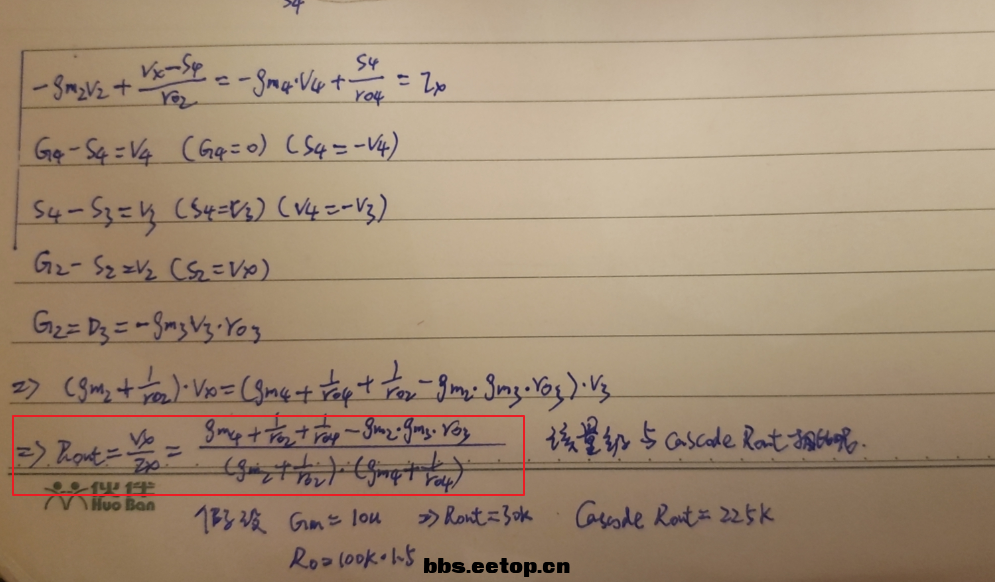 S4
-gm2V2 + (Vx-S4)/ro2 = -gm4·V4 + S4/ro4 = Ix
G4-S4=V4 (G4=0) (S4=-V4)
S4-S3=V3 (S4=V3) (V4=-V3)
G2-S2=V2 (S2=Vx)
G2=D3=-gm3V3·ro3
=> (gm2+1/ro2)·Vx=(gm4+1/ro4+1/ro2-gm2·gm3·ro3)·V3
=> Rout=Vx/Ix=(gm4+1/ro2+1/ro4-gm2·gm3·ro3)/((gm2+1/ro2)·(gm4+1/ro4)) 该量级与Cascode Rout
伙伴
HuoBan
假设 Gm=10u => Rout=30k Cascode Rout=225k
Ro=100k·1.5
bbs.eetop.cn